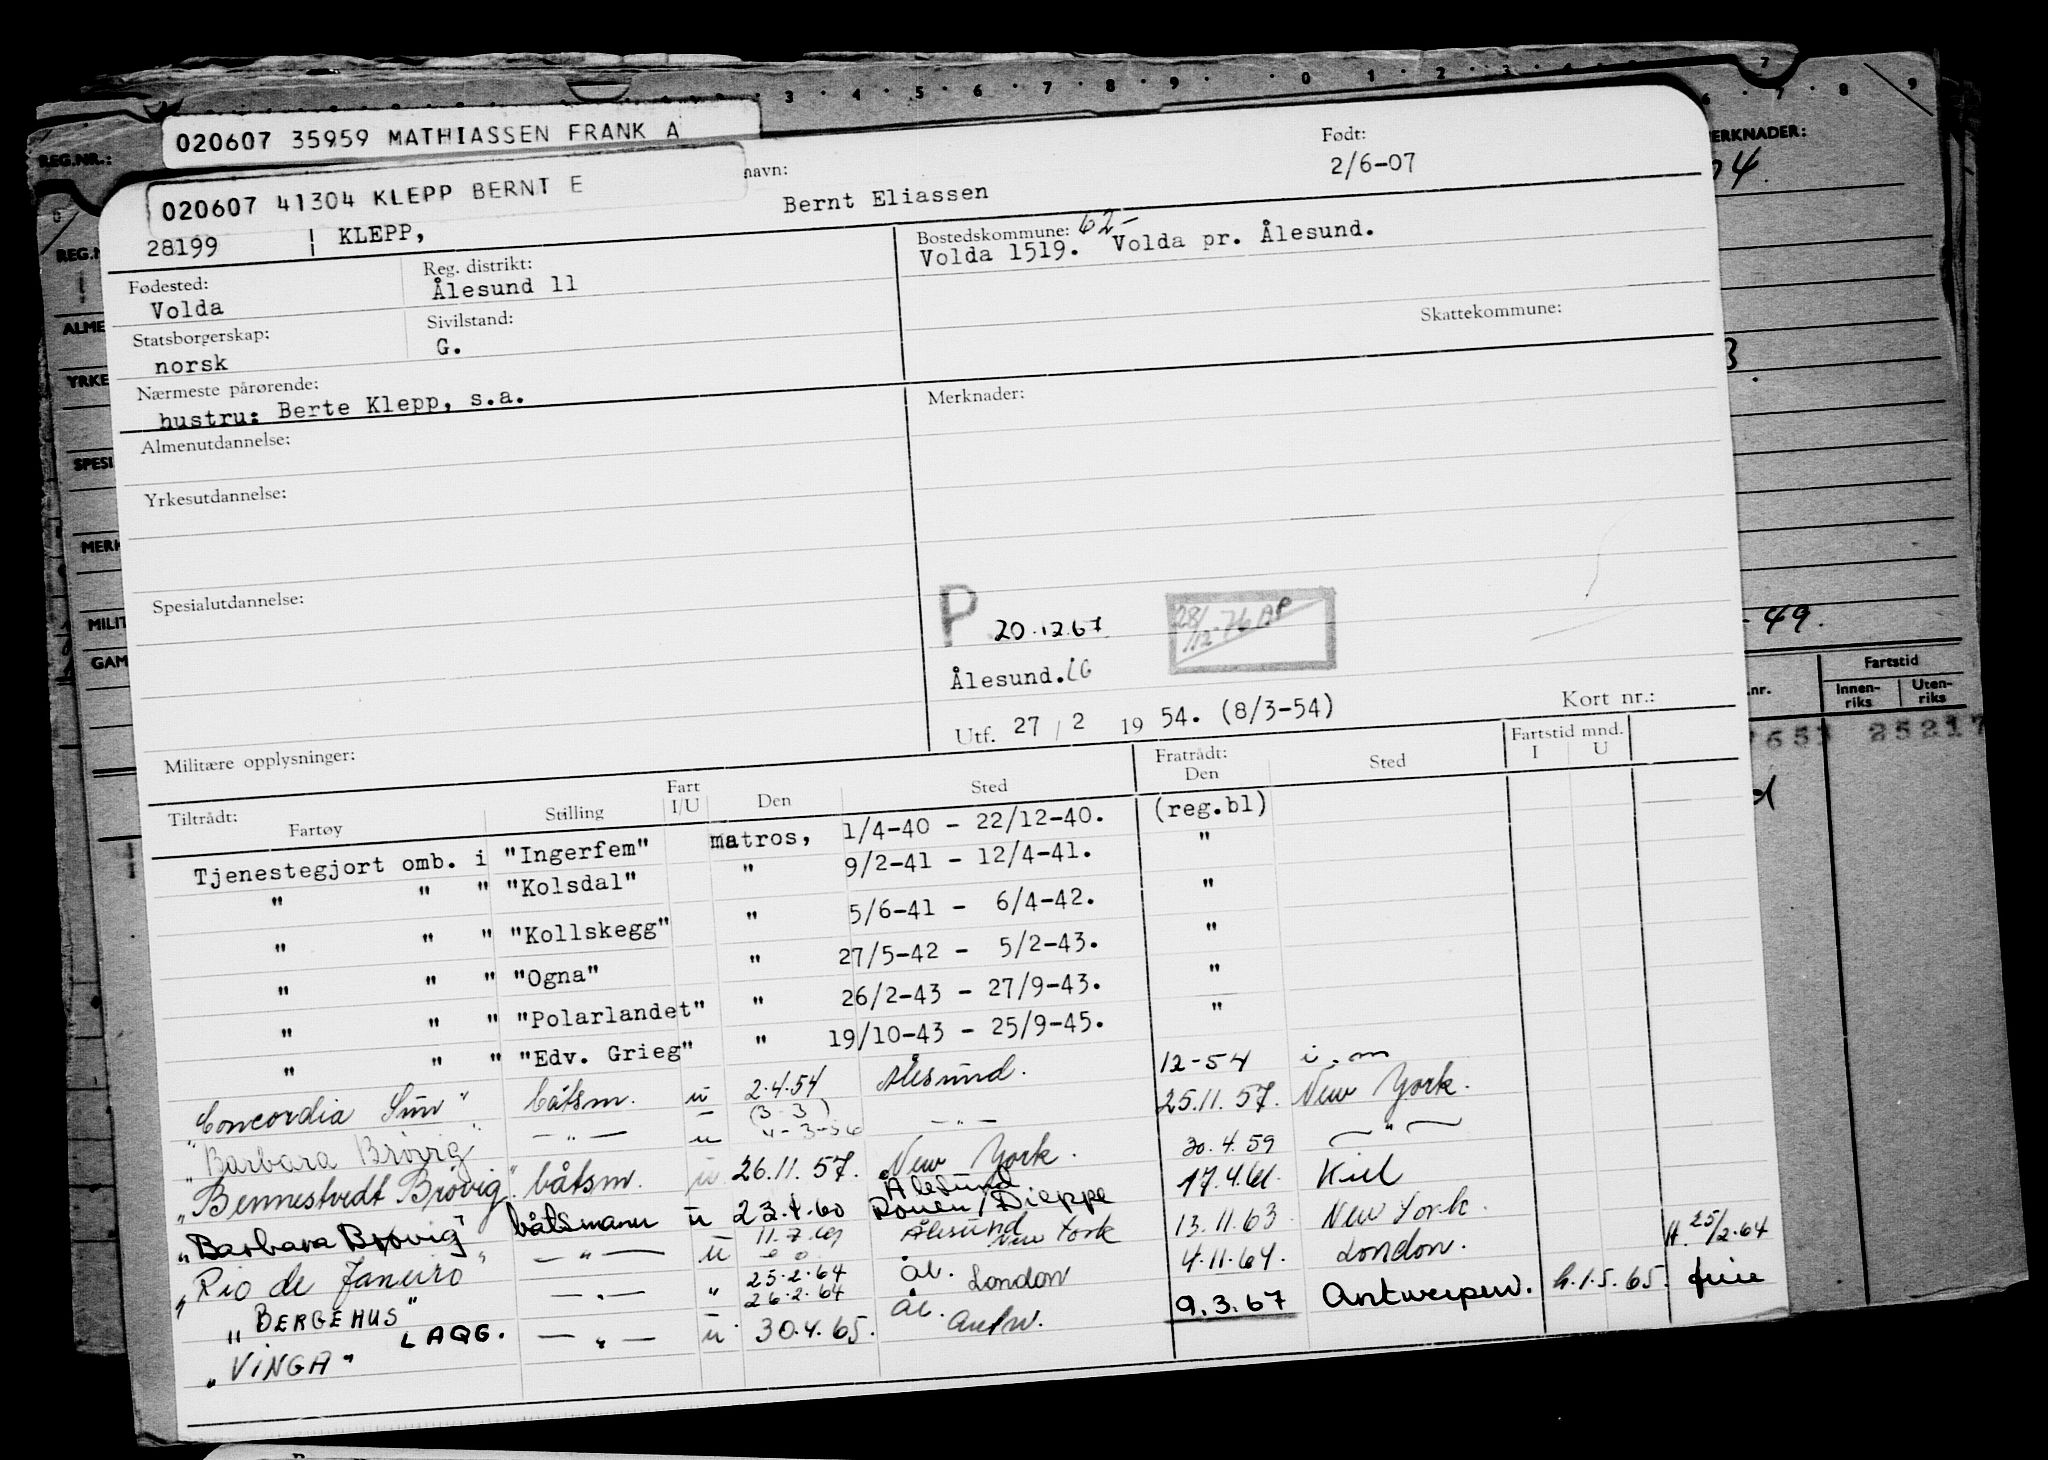 3 · 4 · 5 · 6 · 7 · 8 · 9 · · 0 · 1 · 2 · 3
7 · 8 9
REG.NR.:
MERKNADER:
020607 35959 MATHIASSEN FRANK A
020607 41304 KLEPP BERNT E
navn:
Født:
28199 KLEPP, Bernt Eliassen 2/6-07
Fødested: Reg. distrikt: Bostedskommune: 62-
Volda Ålesund 11 Volda 1519. Volda pr. Ålesund.
Statsborgerskap: Sivilstand: Skattekommune:
norsk G.
Nærmeste pårørende: Merknader:
hustru: Berte Klepp, s.a.
Almenutdannelse:
Yrkesutdannelse:
Spesialutdannelse:
P 20.12.67 28/12-76 AP
Ålesund.
Utf. 27 / 2 19 54. (8/3-54) Kort nr.:
Militære opplysninger:
Tiltrådt: Fartøy Stilling Fart I/U Den Sted Fratrådt: Den Sted Fartstid mnd. I U
Tjenestegjort omb. i "Ingerfem" matros, 1/4-40 - 22/12-40. (reg.bl)
" " " "Kolsdal" " 9/2-41 - 12/4-41. "
" " " "Kollskegg" " 5/6-41 - 6/4-42. "
" " " "Ogna" " 27/5-42 - 5/2-43. "
" " " "Polarlandet" " 26/2-43 - 27/9-43. "
" " " "Edv. Grieg" " 19/10-43 - 25/9-45. "
"Concordia Sun" båtsm. u 2.4.54 Ålesund. 12-54 i.m
"Barbara Brøvig" — " — u (3-3) 4-3-56 — " — 25.11.57. New York.
"Bennestvedt Brøvig" båtsm. u 26.11.57. New York. 30.4.59 — " —
"Barbara Brøvig" båtsmann u 23.4.60 Ålesund Rouen/Dieppe 17.4.61. Kiel
"Rio de Janeiro" — " — u 11.7.61 Ålesund New York 13.11.63 New York.
"BERGEHUS" — " — " 25.2.64 26.2.64 Ål. London 4.11.64. London. H. 25/2-64
"VINGA" LAQG. — " — u 30.4.65. Ål. Antw. 9.3.67 Antwerpen. h.1.5.65.
- 49.
Fartstid
nr. Innenriks Utenriks
25217